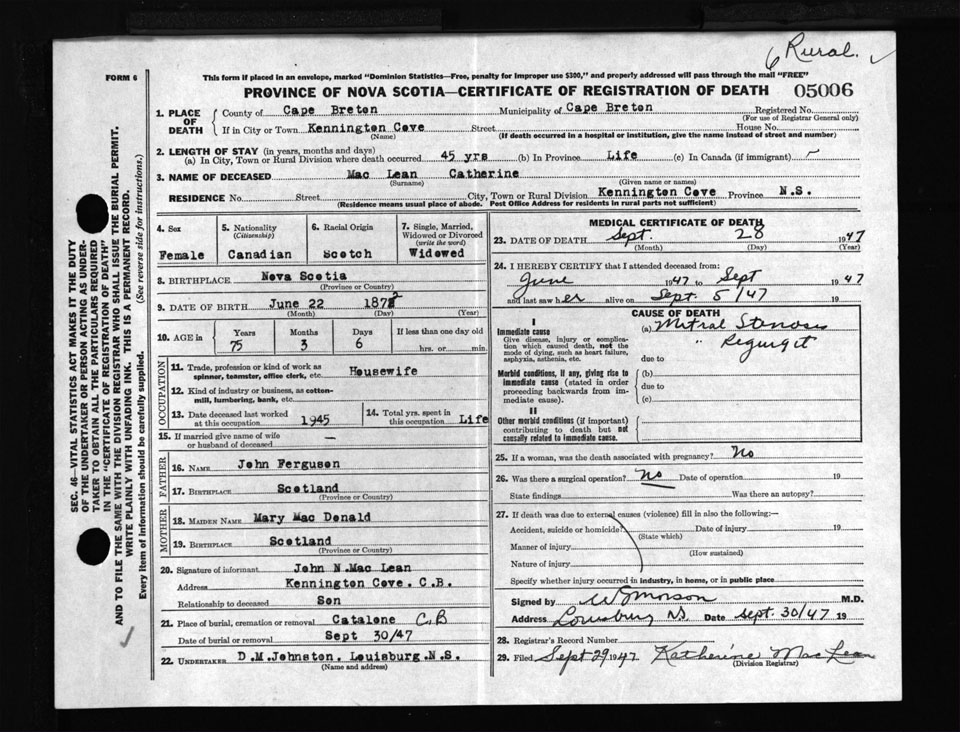 6 Rural.
FORM 6
This form if placed in an envelope, marked "Dominion Statistics—Free, penalty for improper use $300," and properly addressed will pass through the mail "FREE"
PROVINCE OF NOVA SCOTIA—CERTIFICATE OF REGISTRATION OF DEATH 05006
1. PLACE OF DEATH
County of Cape Breton Municipality of Cape Breton Registered No.
(For use of Registrar General only)
If in City or Town Kennington Cove Street House No.
(Name) (If death occurred in a hospital or institution, give the name instead of street and number)
2. LENGTH OF STAY (in years, months and days)
(a) In City, Town or Rural Division where death occurred 45 yrs (b) In Province Life (c) In Canada (if immigrant)
3. NAME OF DECEASED Mac Lean Catherine
(Surname) (Given name or names)
RESIDENCE No. Street City, Town or Rural Division Kennington Cove Province N.S.
(Residence means usual place of abode. Post Office Address for residents in rural parts not sufficient)
4. Sex
Female
5. Nationality
(Citizenship)
Canadian
6. Racial Origin
Scotch
7. Single, Married, Widowed or Divorced
(write the word)
Widowed
8. BIRTHPLACE Nova Scotia
(Province or Country)
9. DATE OF BIRTH June 22 1872
(Month) (Day) (Year)
10. AGE in
Years Months Days If less than one day old
75 3 6 hrs. or min.
OCCUPATION
11. Trade, profession or kind of work as
spinner, teamster, office clerk, etc. Housewife
12. Kind of industry or business, as cotton-
mill, lumbering, bank, etc.
13. Date deceased last worked
at this occupation 1945
14. Total yrs. spent in
this occupation Life
15. If married give name of wife
or husband of deceased —
FATHER
16. NAME John Ferguson
17. BIRTHPLACE Scotland
(Province or Country)
MOTHER
18. MAIDEN NAME Mary Mac Donald
19. BIRTHPLACE Scotland
(Province or Country)
20. Signature of informant John N.Mac Lean
Address Kennington Cove. C.B.
Relationship to deceased Son
21. Place of burial, cremation or removal Catalone C.B
Date of burial or removal Sept 30/47
22. UNDERTAKER D.M.Johnston. Louisburg.N.S.
(Name and address)
MEDICAL CERTIFICATE OF DEATH
23. DATE OF DEATH Sept. 28 1947
(Month) (Day) (Year)
24. I HEREBY CERTIFY that I attended deceased from:
June 1947 to Sept 1947
and last saw her alive on Sept. 5/47 19
CAUSE OF DEATH
I
Immediate cause
Give disease, injury or complica-
tion which caused death, not the
mode of dying, such as heart failure,
asphyxia, asthenia, etc.
(a) Mitral Stenosis
" Regurgit
due to
Morbid conditions, if any, giving rise to
immediate cause (stated in order
proceeding backwards from im-
mediate cause).
(b)
due to
(c)
II
Other morbid conditions (if important)
contributing to death but not
causally related to immediate cause.
25. If a woman, was the death associated with pregnancy? No
26. Was there a surgical operation? No Date of operation 19
State findings Was there an autopsy?
27. If death was due to external causes (violence) fill in also the following:—
Accident, suicide or homicide? Date of injury 19
(State which)
Manner of injury
(How sustained)
Nature of injury
Specify whether injury occurred in industry, in home, or in public place
Signed by M.D.
Address Louisburg NS Date Sept. 30/47 19
28. Registrar's Record Number
29. Filed Sept 29 1947 Katherine MacLean
(Division Registrar)
SEC. 46—VITAL STATISTICS ACT MAKES IT THE DUTY
OF THE UNDERTAKER OR PERSON ACTING AS UNDER-
TAKER TO OBTAIN ALL THE PARTICULARS REQUIRED
IN THE "CERTIFICATE OF REGISTRATION OF DEATH"
AND TO FILE THE SAME WITH THE DIVISION REGISTRAR WHO SHALL ISSUE THE BURIAL PERMIT.
WRITE PLAINLY WITH UNFADING INK. THIS IS A PERMANENT RECORD.
Every item of information should be carefully supplied. (See reverse side for instructions.)